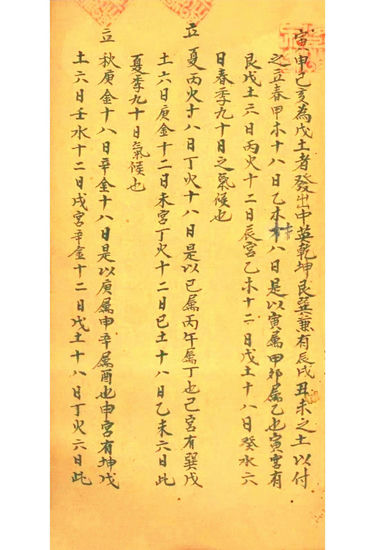 寅申己亥為戊土者發出中英乾坤艮巽兼有辰戌丑未之土以付
之立春甲木十八日乙木十八日是以寅属甲卯属乙也寅宮有
艮戊土六日丙火十二日辰宮乙木十二日戊土十八日癸水六
日春季九十日之氣候也
立夏丙火十八日丁火十八日是以巳属丙午属丁也己宮有巽戊
土六日庚金十二日未宮丁火十二日巳土十八日乙未六日此
夏季九十日氣候也
立秋庚金十八日辛金十八日是以庚属申辛属酉也申宮有坤戊
土六日壬水十二日戌宮辛金十二日戊土十八日丁火六日此